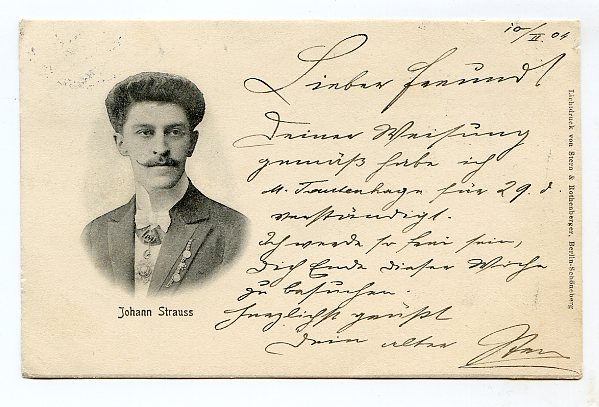 10/II 04
Lieber Freund!
Deiner Weisung
gemäß habe ich
M. Tautenhage für 29. d.
verständigt.
Ich werde so frei sein,
Dich Ende dieser Woche
zu besuchen.
Herzlichst grüßt
Dein alter
Johann Strauss
Lichtdruck von Stern & Rothenberger, Berlin-Schöneberg